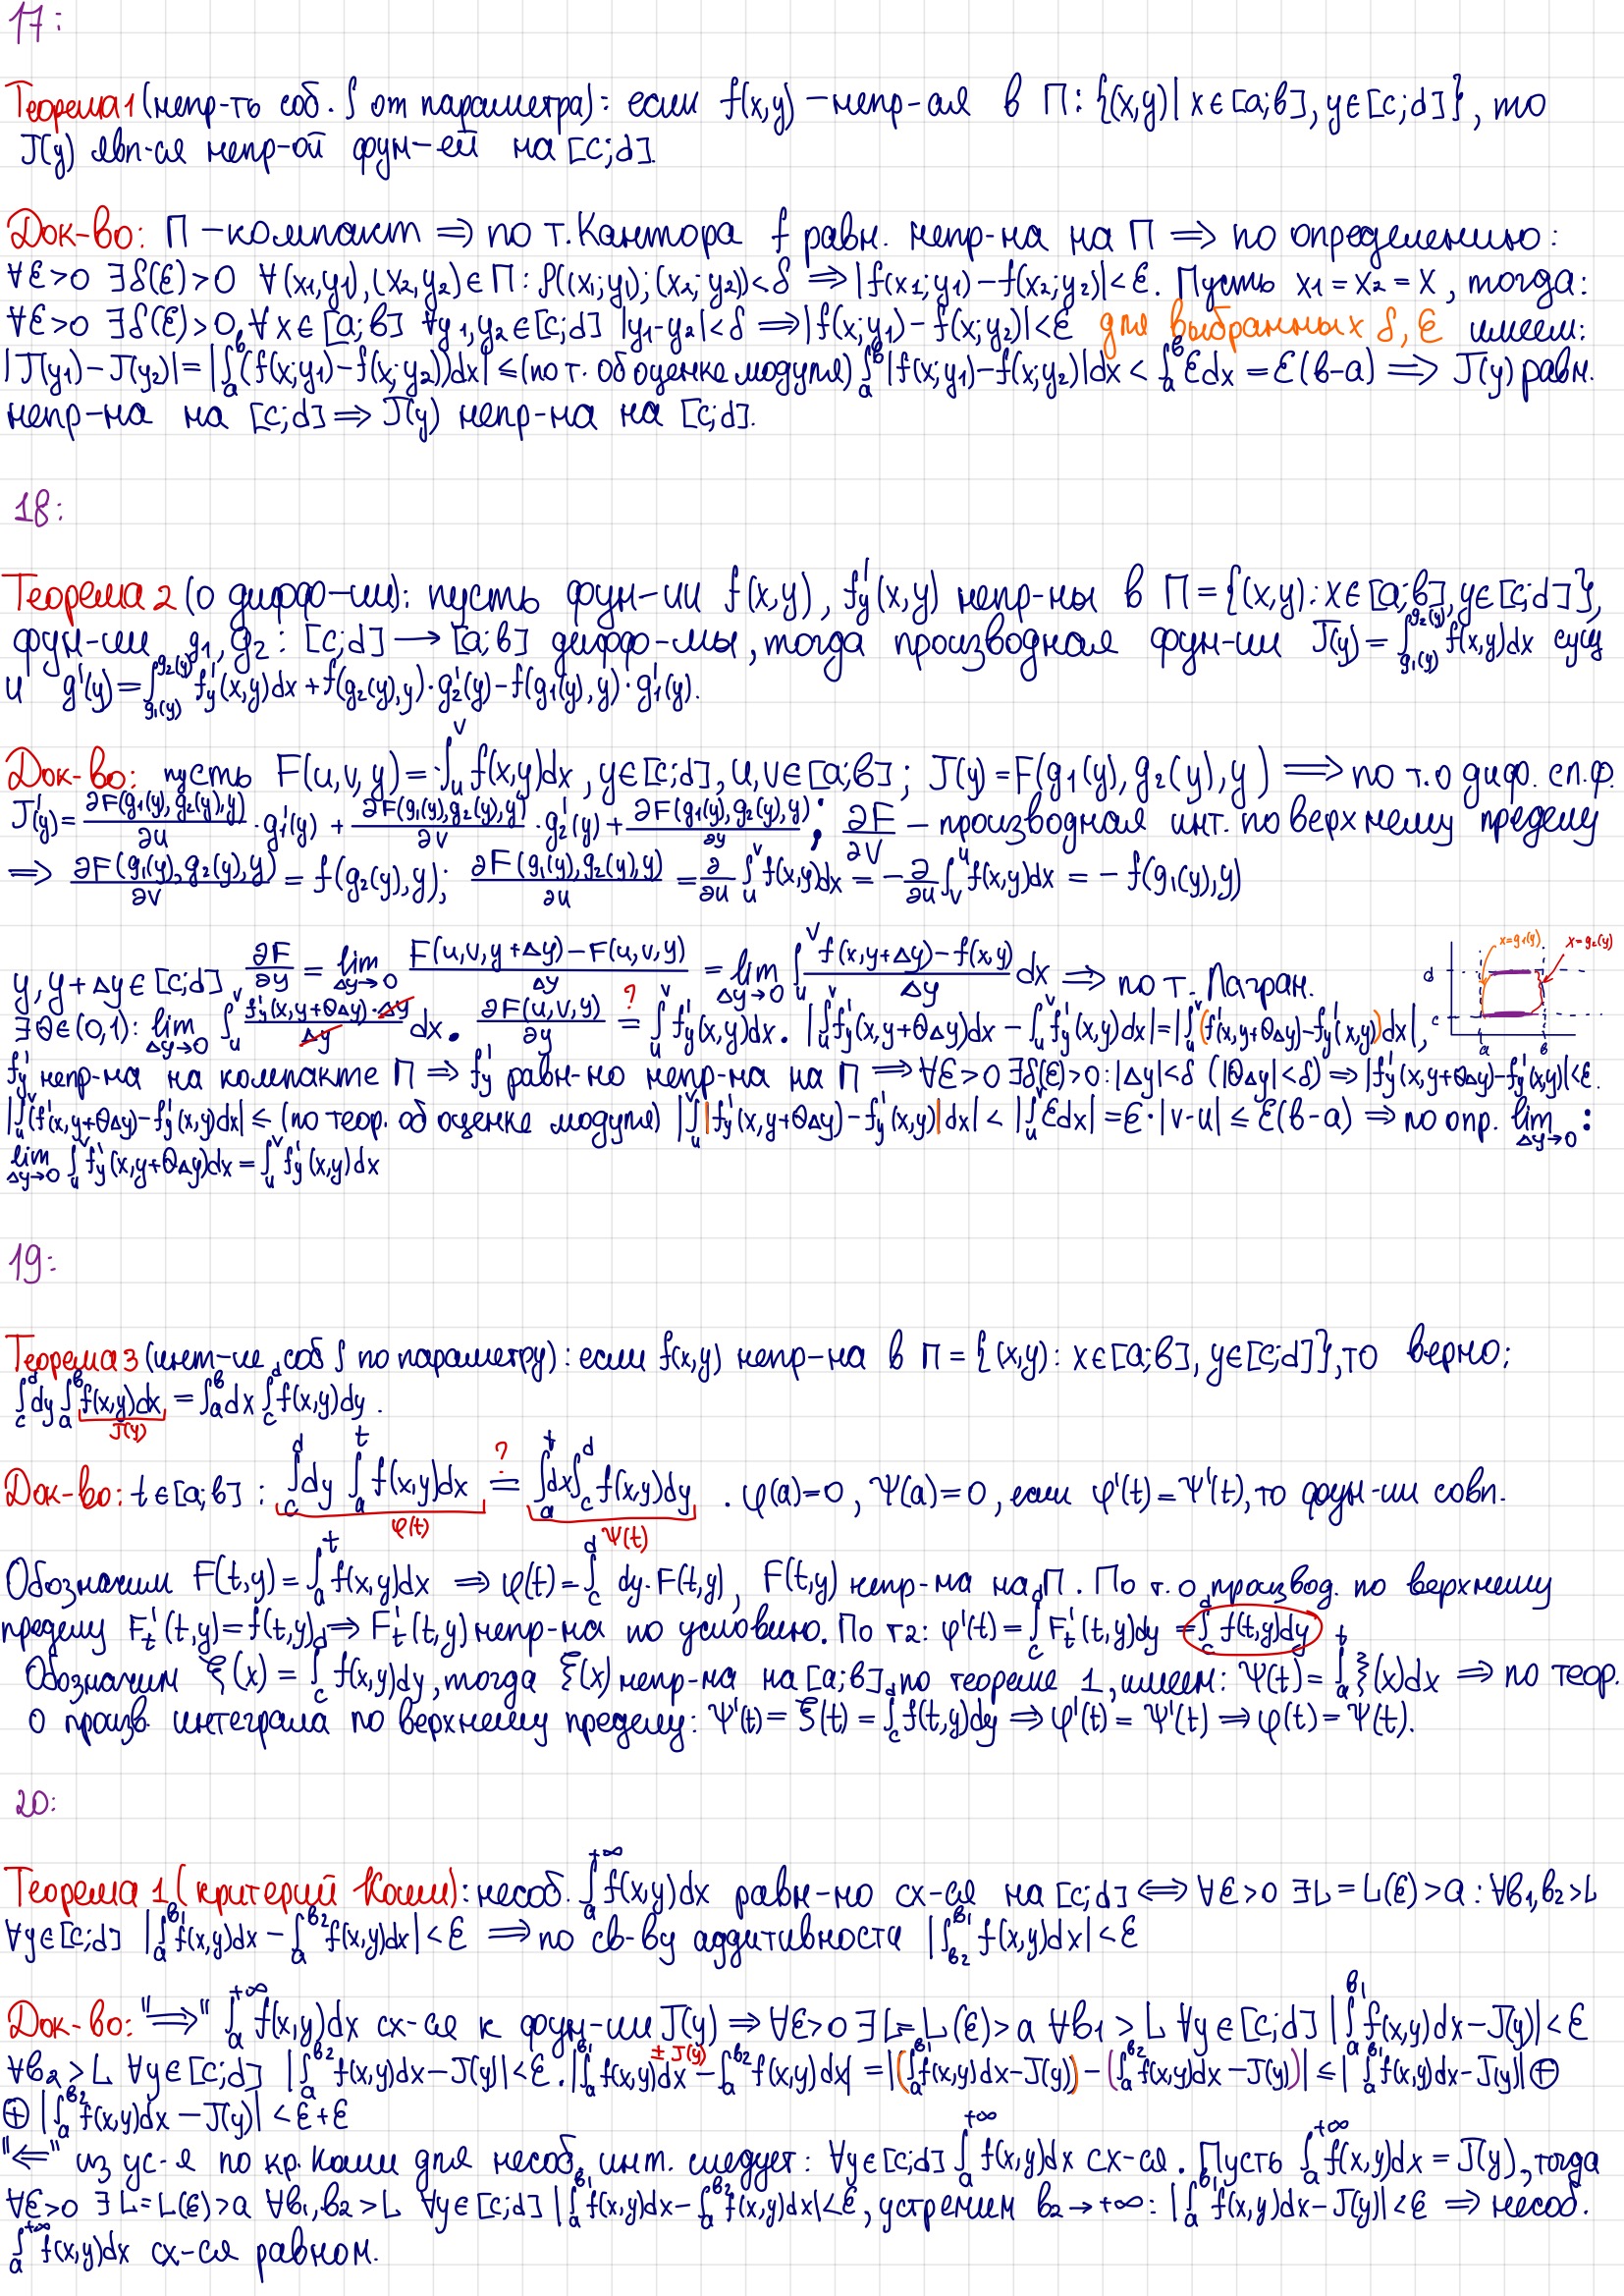 17:
Теорема 1 (непр-ть соб. ∫ от параметра): если f(x,y) – непр-ая в П: {(x,y)| x∈[a;b], y∈[c;d]}, то
J(y) явл-ся непр-ой фун-ей на [c;d].
Док-во: П – компакт ⇒ по т. Кантора f равн. непр-на на П ⇒ по определению:
∀ε>0 ∃δ(ε)>0 ∀(x₁,y₁),(x₂,y₂)∈П: ρ((x₁;y₁);(x₂;y₂))<δ ⇒ |f(x₁;y₁)–f(x₂;y₂)|<ε. Пусть x₁=x₂=x, тогда:
∀ε>0 ∃δ(ε)>0, ∀x∈[a;b] ∀y₁,y₂∈[c;d] |y₁-y₂|<δ ⇒ |f(x;y₁)–f(x;y₂)|<ε для выбранных δ, ε имеем:
|J(y₁)–J(y₂)|=|∫ₐᵇ(f(x;y₁)–f(x;y₂))dx| ≤ (по т. об оценке модуля) ∫ₐᵇ|f(x;y₁)–f(x;y₂)|dx < ∫ₐᵇ εdx = ε(b–a) ⇒ J(y) равн.
непр-на на [c;d] ⇒ J(y) непр-на на [c;d].
18:
Теорема 2 (о диффф-ии): пусть фун-ии f(x,y), f'_y(x,y) непр-ны в П={(x,y): x∈[a;b], y∈[c;d]},
фун-ии g₁, g₂: [c;d]→[a;b] дифф-мы, тогда производная фун-ии J(y)=∫_{g₁(y)}^{g₂(y)} f(x,y)dx сущ
и g'(y)=∫_{g₁(y)}^{g₂(y)} f'_y(x,y)dx + f(g₂(y),y)·g₂'(y) – f(g₁(y),y)·g₁'(y).
Док-во: пусть F(u,v,y)=∫_u^v f(x,y)dx, y∈[c;d], u,v∈[a;b]; J(y)=F(g₁(y),g₂(y),y) ⇒ по т. о диф. сл. ф.
J'(y)= ∂F(g₁(y),g₂(y),y)/∂u · g₁'(y) + ∂F(g₁(y),g₂(y),y)/∂v · g₂'(y) + ∂F(g₁(y),g₂(y),y)/∂y ; ∂F/∂v – производная инт. по верхнему пределу
⇒ ∂F(g₁(y),g₂(y),y)/∂v = f(g₂(y),y); ∂F(g₁(y),g₂(y),y)/∂u = ∂/∂u ∫_u^v f(x,y)dx = –∂/∂u ∫_v^u f(x,y)dx = –f(g₁(y),y)
x=g₁(y) x=g₂(y)
d
c
a b
y, y+Δy∈[c;d] ∂F/∂y = lim_{Δy→0} (F(u,v,y+Δy)–F(u,v,y))/Δy = lim_{Δy→0} ∫_u^v (f(x,y+Δy)–f(x,y))/Δy dx ⇒ по т. Лагран.
∃θ∈(0,1): lim_{Δy→0} ∫_u^v (f'_y(x,y+θΔy)·Δy)/Δy dx. ∂F(u,v,y)/∂y =? ∫_u^v f'_y(x,y)dx. |∫_u^v f'_y(x,y+θΔy)dx – ∫_u^v f'_y(x,y)dx|=|∫_u^v (f'_y(x,y+θΔy)–f'_y(x,y))dx|,
f'_y непр-на на компакте П ⇒ f'_y равн-но непр-на на П ⇒ ∀ε>0 ∃δ(ε)>0: |Δy|<δ (|θΔy|<δ) ⇒ |f'_y(x,y+θΔy)–f'_y(x,y)|<ε.
|∫_u^v (f'_y(x,y+θΔy)–f'_y(x,y)dx| ≤ (по теор. об оценке модуля) |∫_u^v |f'_y(x,y+θΔy)–f'_y(x,y)|dx| < |∫_u^v εdx| = ε·|v–u| ≤ ε(b–a) ⇒ по опр. lim_{Δy→0}:
lim_{Δy→0} ∫_u^v f'_y(x,y+θΔy)dx = ∫_u^v f'_y(x,y)dx
19:
Теорема 3 (инт-ие соб ∫ по параметру): если f(x,y) непр-на в П={(x,y): x∈[a;b], y∈[c;d]}, то верно:
∫_c^d dy ∫_a^b f(x,y)dx = ∫_a^b dx ∫_c^d f(x,y)dy.
J(y)
Док-во: t∈[a;b]: ∫_c^d dy ∫_a^t f(x,y)dx =? ∫_a^t dx ∫_c^d f(x,y)dy. φ(a)=0, Ψ(a)=0, если φ'(t)=Ψ'(t), то фун-ии совп.
φ(t) Ψ(t)
Обозначим F(t,y)=∫_a^t f(x,y)dx ⇒ φ(t)=∫_c^d dy·F(t,y), F(t,y) непр-на на П. По т. о производ. по верхнему
пределу F'_t(t,y)=f(t,y) ⇒ F'_t(t,y) непр-на по условию. По т2: φ'(t)=∫_c^d F'_t(t,y)dy =∫_c^d f(t,y)dy
Обозначим ξ(x)=∫_c^d f(x,y)dy, тогда ξ(x) непр-на на [a;b] по теореме 1, имеем: Ψ(t)=∫_a^t ξ(x)dx ⇒ по теор.
о произв. интеграла по верхнему пределу: Ψ'(t)=ξ(t)=∫_c^d f(t,y)dy ⇒ φ'(t)=Ψ'(t) ⇒ φ(t)=Ψ(t).
20:
Теорема 1 (критерий Коши): несоб. ∫_a^{+∞} f(x,y)dx равн-но сх-ся на [c;d] ⇔ ∀ε>0 ∃L=L(ε)>a: ∀b₁,b₂>L
∀y∈[c;d] |∫_a^{b₁} f(x,y)dx – ∫_a^{b₂} f(x,y)dx|<ε ⇒ по св-ву аддитивности |∫_{b₂}^{b₁} f(x,y)dx|<ε
Док-во: "⇒" ∫_a^{+∞} f(x,y)dx сх-ся к фун-ии J(y) ⇒ ∀ε>0 ∃L=L(ε)>a ∀b₁>L ∀y∈[c;d] |∫_a^{b₁} f(x,y)dx–J(y)|<ε
∀b₂>L ∀y∈[c;d] |∫_a^{b₂} f(x,y)dx–J(y)|<ε. |∫_a^{b₁} f(x,y)dx ± J(y) – ∫_a^{b₂} f(x,y)dx| =|(∫_a^{b₁} f(x,y)dx–J(y)) – (∫_a^{b₂} f(x,y)dx–J(y))| ≤ |∫_a^{b₁} f(x,y)dx–J(y)| ⊕
⊕ |∫_a^{b₂} f(x,y)dx–J(y)| < ε+ε
"⇐" из ус-я по кр. Коши для несоб. инт. следует: ∀y∈[c;d] ∫_a^{+∞} f(x,y)dx сх-ся. Пусть ∫_a^{+∞} f(x,y)dx = J(y), тогда
∀ε>0 ∃L=L(ε)>a ∀b₁,b₂>L ∀y∈[c;d] |∫_a^{b₁} f(x,y)dx–∫_a^{b₂} f(x,y)dx|<ε, устремим b₂→+∞: |∫_a^{b₁} f(x,y)dx–J(y)|<ε ⇒ несоб.
∫_a^{+∞} f(x,y)dx сх-ся равном.